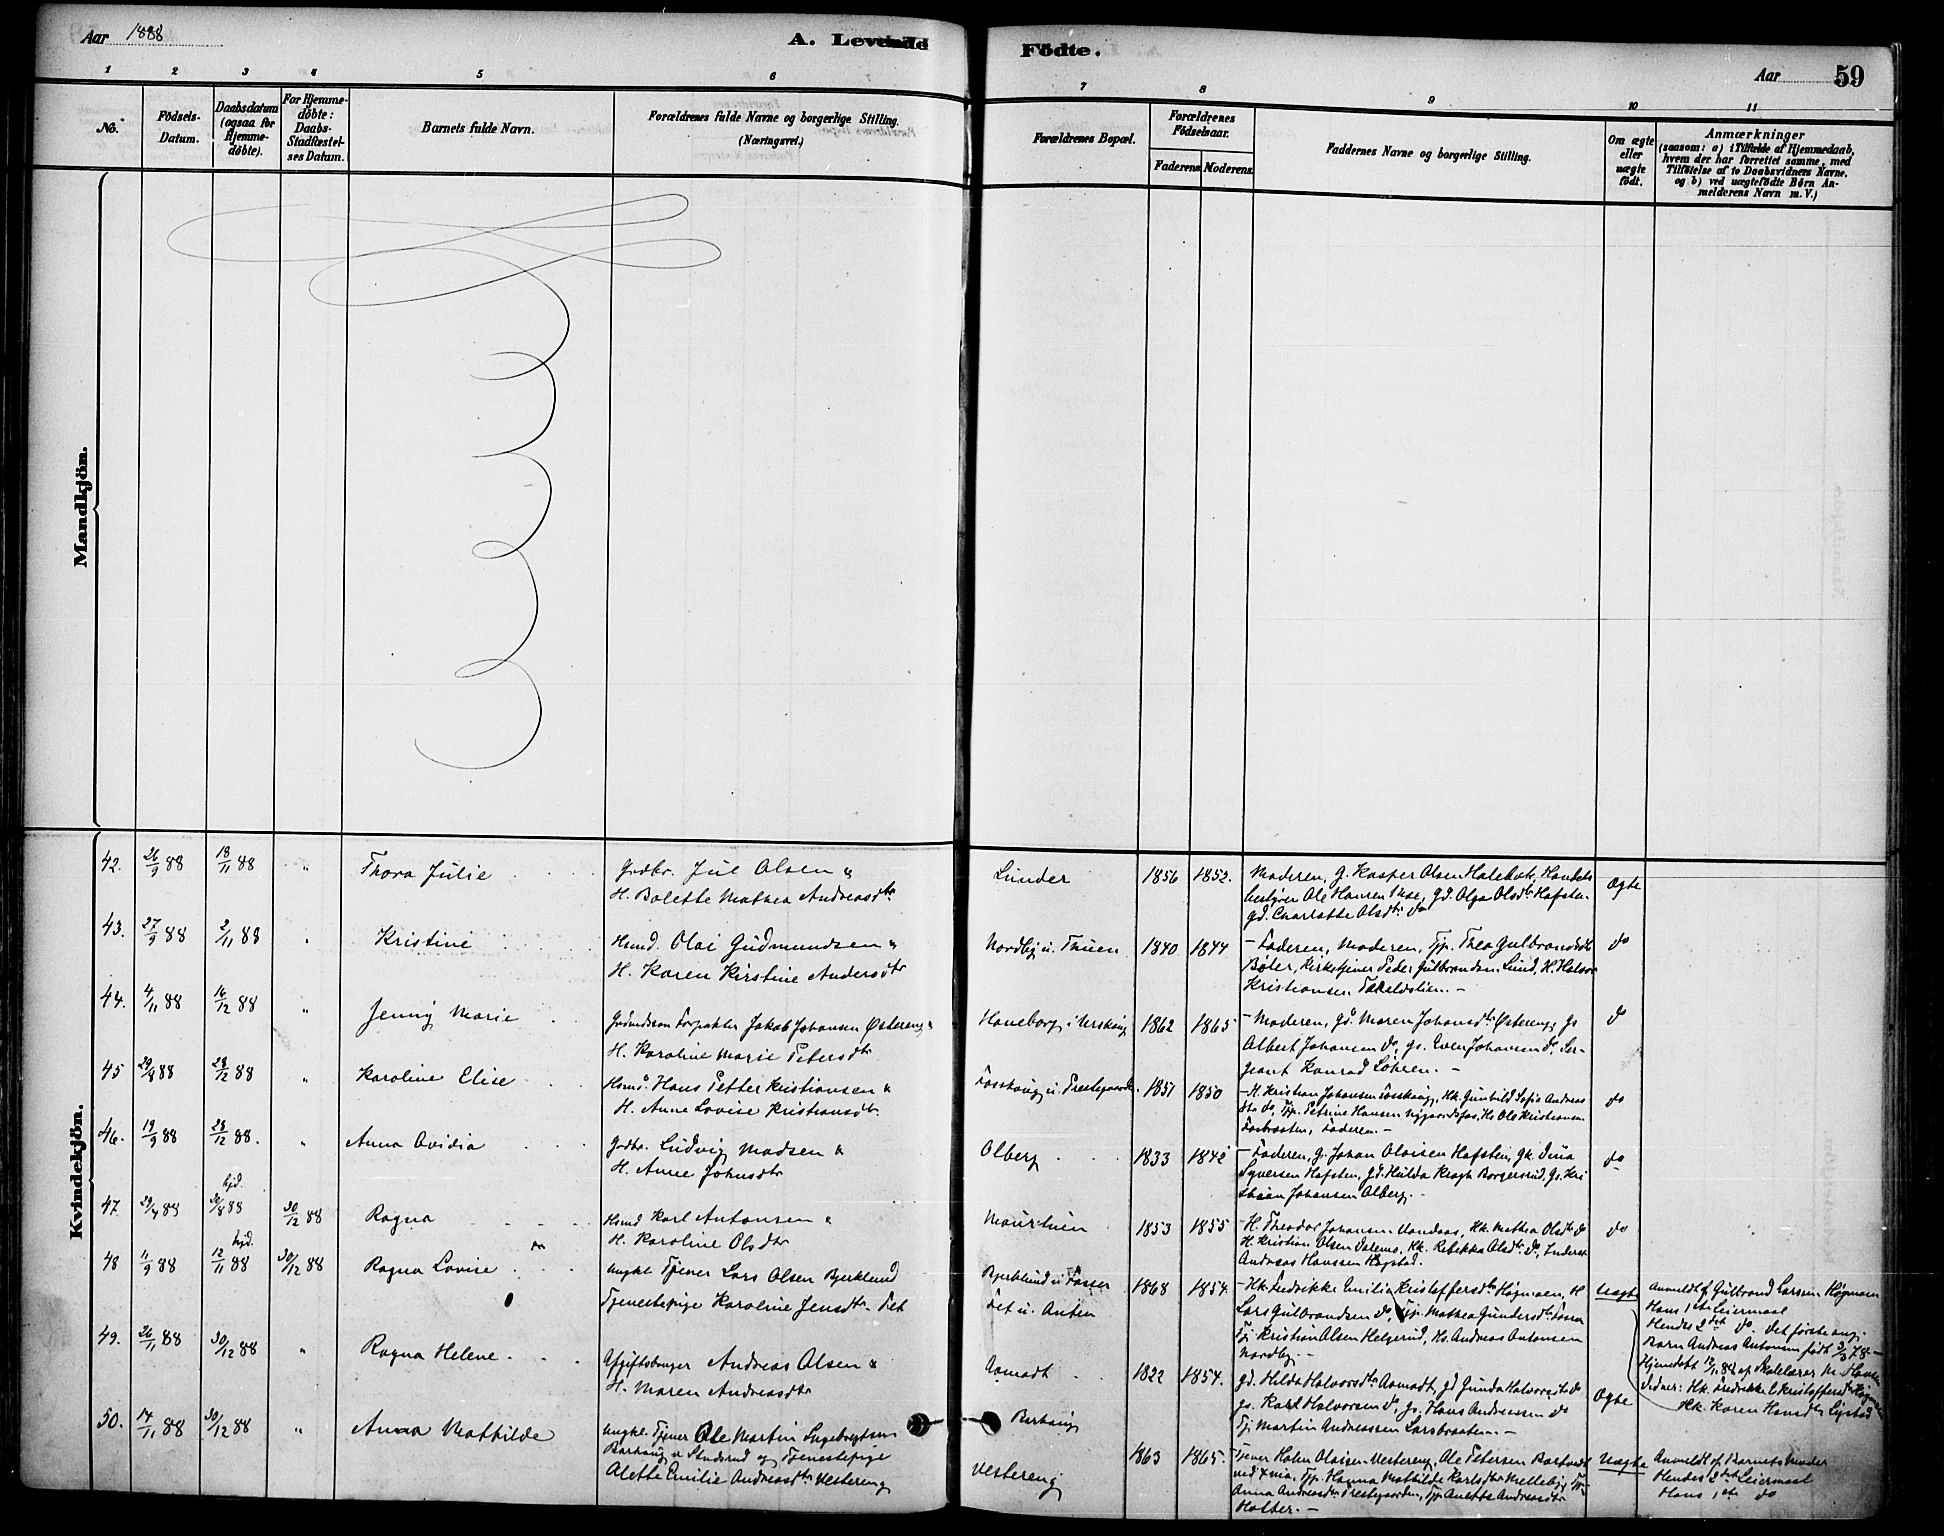 Aar 1888
A. Levende Födte.
Aar 59
1 2 3 4 5 6 7 8 9 10 11
No.
Födsels-Datum.
Daabsdatum (ogsaa for Hjemme-døbte).
For Hjemme-døbte: Daabs-Stadfæstel-ses Datum.
Barnets fulde Navn.
Forældrenes fulde Navne og borgerlige Stilling.
(Næringsvei.)
Forældrenes Bopæl.
Forældrenes Fødselsaar.
Faderens Moderens
Faddernes Navne og borgerlige Stilling.
Om ægte eller uægte født.
Anmærkninger
(saasom: a) i Tilfælde af Hjemmedaab,
hvem der har forrettet samme, med
Tilføielse af to Daabsvidners Navne,
og b) ved uægtefødte Børn An-
melderens Navn m. V.)
Mandkjön.
Kvindekjön.
42. 26/9 88 18/11 88 " Thora Julie
Grdbr. Jul Olsen "
H. Bolette Mathea Andreasdtr
Lunder 1856 1852.
Moderen, G. Kasper Olsen
Ole Hansen gd. Olga Olsdtr Hafsten
gd. Charlotte Olsdtr do
Ægte
43. 27/9 88 2/11 88 " Kristine
Hsmd. Olai Gudmundsen "
H. Karen Kirstine Andersdtr
Nordby u. Thuen 1840 1844
- Faderen, Moderen, Tjp. Thea Gulbrandsdtr
Bøler, Kirketjener Peder Gulbrandsen Lund, H. Halvor
Kristiansen
do
44. 4/11 88 16/12 88 " Jenny Marie
Forpakter Jakob Johansen Østereng "
H. Karoline Marie Petersdtr
Haneborg i Urskoug 1862 1865
- Moderen, Gd. Maren Johansdtr Østereng, gs
Albert Johansen do, gs. Johansen do, Ser-
geant Konrad Løhren. -
do
45 29/8 88 28/12 88 " Karoline Elise
Hsmd. Hans Petter Kristiansen "
H. Anne Lovise Kristiansdtr.
Fosshaug u. Prestegaarden 1851 1850
- H. Kristian Johansen Fosshaug, Hk. Gunhild Sofie Andreas
dtr do, Tjp. Petrine Hansen Hs Ole Kristiansen
Faderen. -
do
46. 19/9 88 28/12 88. " Anna Ovidia
Grdbr. Ludvig Madsen "
H. Anne Johnsdtr
Olberg 1833 1842
- Faderen, G. Johan Olaisen Hafsten, Gk. Dina
Syversen Hafsten, Gd. Hulda Kragh Borgersrud, Gs. Kri
stian Johansen Olberg. -
do
47. 29/4 88 hjd. 30/12 88 Ragna
Hsmd Karl Antonsen "
H. Karoline Olsdtr
1853 1855
- H. Theodor Johansen Hk. Mathea Olsdtr do
H. Kristian Olsen Dalemo, Hk. Rebekka Olsdtr do, Inderst
Andreas Hanssen Høgstad.
do
48 11/9 88 hjd. 12/11 88 30/12 88 Ragna Lovise
Ungkl Tjener Lars Olsen Bjerklund
Tjenestepige Karoline Jensdtr Fet
Bjerklund i Fosser
Fet u. Anten
1868 1854
- Hk. Fredrikke Emilie Kristoffersdtr Høgmoen, H
Lars Gulbrandsen do, Tjp. Mathea Gundersdtr
Tj Kristian Olsen Helgerud, Hs. Andreas Antonsen
Nordby. -
Uægte
Anmeldt af Gulbrand Larsen Høgmoen
Hans 1ste Leiermaal
Hendes 2det do. Det første ang.
Barn Andreas Antonsen født 78 -
Hjemdøbt 12/11 88 af Skolelærer M. Hansen
Vidner: Hk. Fredrikke E Kristoffersdtr Høgmoen
Hk. Karen Hansdtr
49. 26/11 88 30/12 88 " Ragna Helene.
Afgiftsbruger Andreas Olsen "
H. Maren Andreasdtr
Aamodt 1822 1854.
Gd. Hilda Halvorsdtr Aamodt, gd Gunda Halvorsdtr do
gs. Karl Halvorsen do, gs. Hans Andreassen do
Tj Martin Andreassen Larsbraaten. -
Ægte
50. 14/11 88 30/12 88 " Anna Mathilde
Ungkl. Tjener Ole Martin Ingebregtsen
Barhaug og Tjenestepige
Alette Emilie Andreasdtr Vestereng
Barhaug
Vestereng
1863 1865.
Tjener Vestereng, Ole Petersen
Tjp. Hanna Mathilde Karlsdtr Melleby, Tjp
Anna Andreasdtr Prestegaarden, Tjp Anette Andreasdtr
Holter. -
Uægte
Anmeldt af Barnets Moder
Hendes 2det Leiermaal
Hans 1ste do